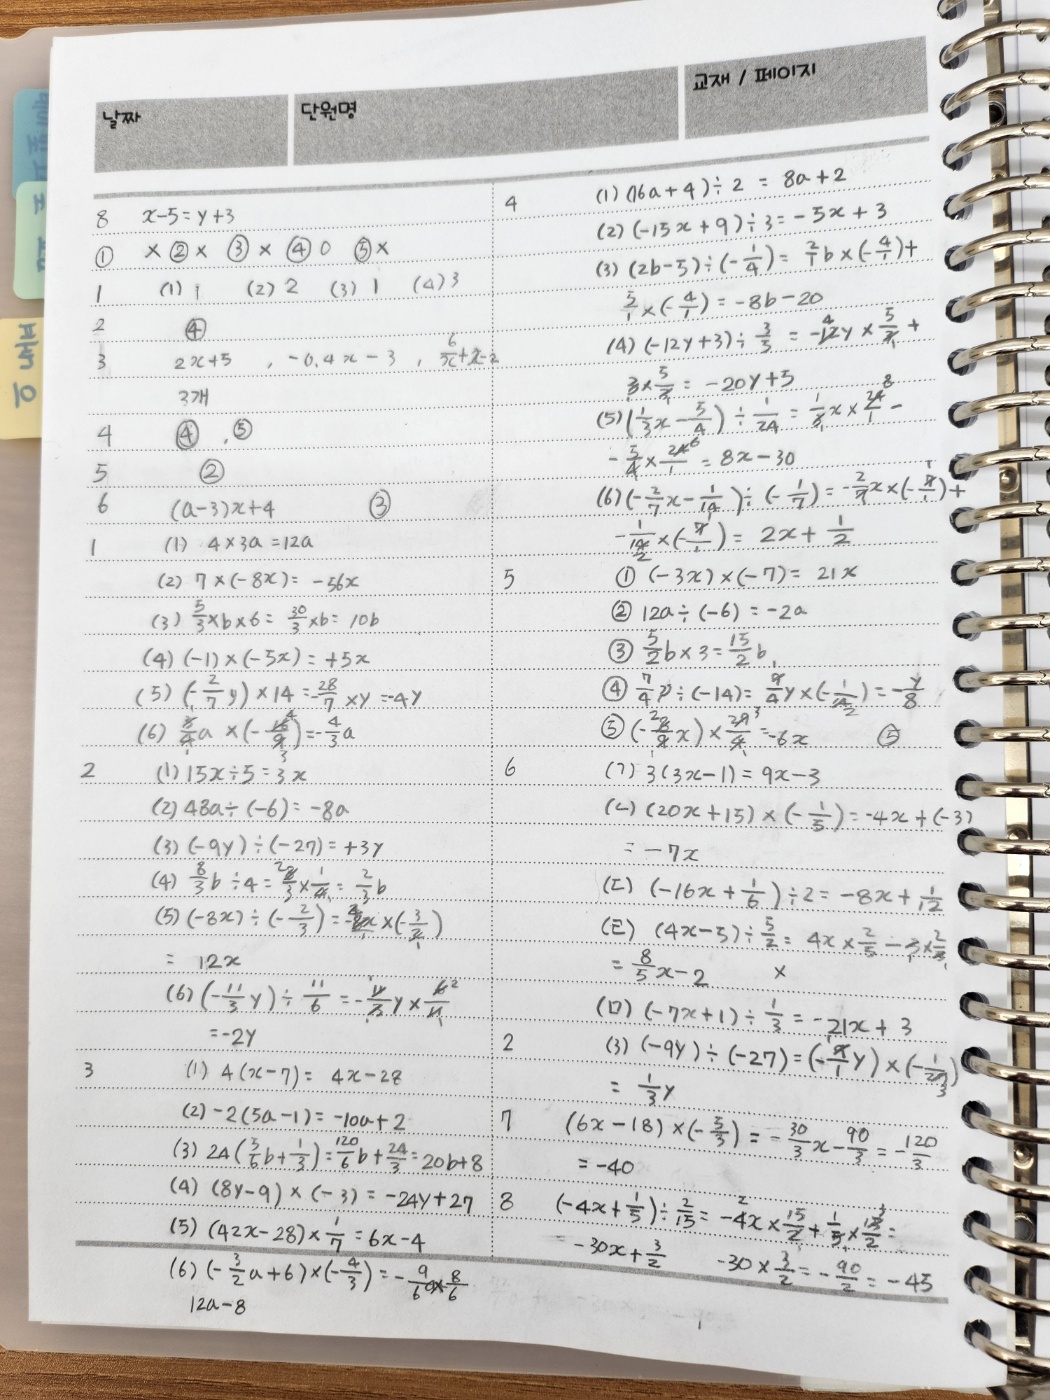 날짜
단원명
교재 / 페이지
8 x-5=y+3
① × ② × ③ × ④ ○ ⑤ ×
1 (1) 1 (2) 2 (3) 1 (4) 3
2 ④
3 2x+5 , -0.4x-3 ,
3개
4 ④ , ⑤
5 ②
6 (a-3)x+4 ③
1 (1) 4×3a=12a
(2) 7×(-8x)= -56x
(3) 5/3×b×6= 30/3×b= 10b
(4) (-1)×(-5x)= +5x
(5) (-2/7y)×14=-28/7×y=-4y
(6) 3/4a ×(-16/9)=-4/3a
2 (1) 15x÷5=3x
(2) 48a÷(-6)=-8a
(3) (-9y)÷(-27)=+3y
(4) 8/3b÷4=8/3×1/4=2/3b
(5) (-8x)÷(-2/3)=-8x×(-3/2)
= 12x
(6) (-11/3y)÷11/6=-11/3y×6/11
=-2y
3 (1) 4(x-7)= 4x-28
(2) -2(5a-1)=-10a+2
(3) 24(5/6b+1/3)=120/6b+24/3=20b+8
(4) (8y-9)×(-3)=-24y+27
(5) (42x-28)×1/7=6x-4
(6) (-3/2a+6)×(-4/3)=
12a-8
4 (1) (16a+4)÷2 = 8a+2
(2) (-15x+9)÷3=-5x+3
(3) (2b-5)÷(-1/4)= 2/1b×(-4/1)+
5/1×(-4/1)=-8b-20
(4) (-12y+3)÷3/5 = -12y×5/3+
3×5/3= -20y+5
(5) (1/3x-5/4)÷1/24=1/3x×24/1-
-5/4×24/1=8x-30
(6) (-2/7x-1/14)÷(-1/7)=-2/7x×(-7/1)+
-1/14×(-7/1)= 2x+1/2
5 ① (-3x)×(-7)= 21x
② 12a÷(-6)=-2a
③ 5/2b×3=15/2b
④ 7/4y÷(-14)=7/4y×(-1/14)=-y/8
⑤ =-6x ⑤
6 (ㄱ) 3(3x-1)=9x-3
(ㄴ) (20x+15)×(-1/5)=-4x+(-3)
= -7x
(ㄷ) (-16x+1/6)÷2=-8x+1/12
(ㄹ) (4x-5)÷5/2= 4x×2/5-5×2/5
= 8/5x-2 ×
(ㅁ) (-7x+1)÷1/3=-21x+3
2 (3) (-9y)÷(-27)=(-9/1y)×(-1/27)
= 1/3y
7 (6x-18)×(-5/3)=-30/3x-90/3=-120/3
=-40
8 (-4x+1/5)÷2/15=-4x×15/2+1/5×15/2=
-30x+3/2 -30×3/2=-90/2=-45